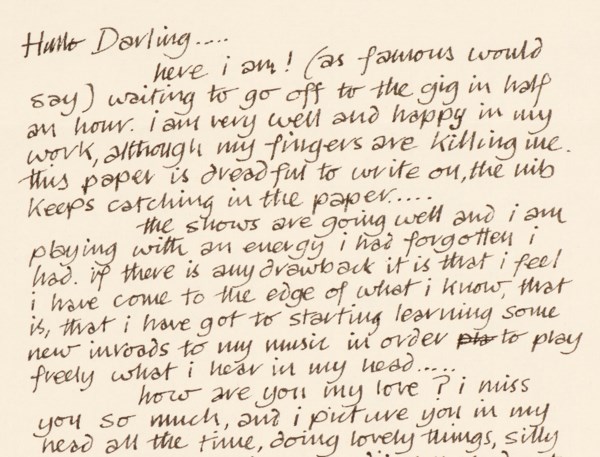 Hullo Darling.....
here i am! (as famous would
say) waiting to go off to the gig in half
an hour. i am very well and happy in my
work, although my fingers are killing me.
this paper is dreadful to write on, the nib
keeps catching in the paper.....
the shows are going well and i am
playing with an energy i had forgotten i
had. if there is any drawback it is that i feel
i have come to the edge of what i know, that
is, that i have got to starting learning some
new inroads to my music in order to play
freely what i hear in my head.....
how are you my love? i miss
you so much, and i picture you in my
head all the time, doing lovely things, silly